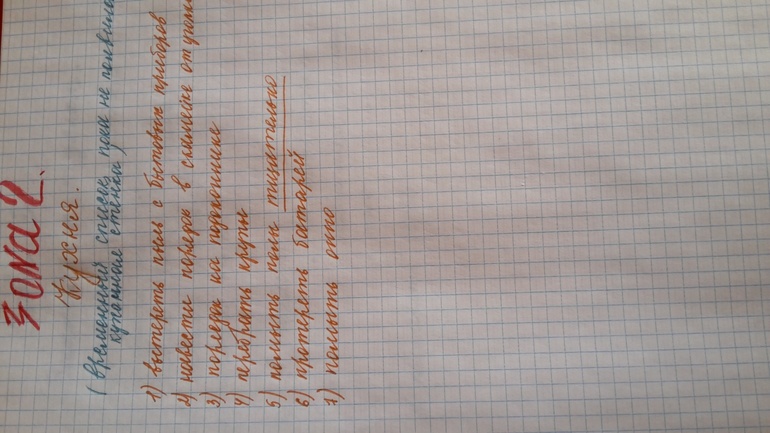 Зона 2.
Кухня.
(временный список, пока не появилась
кухонная стенка)
1) вытереть пыль с бытовых приборов
2) навести порядок в скамейке от уголка
3) порядок на подоконнике
4) перебрать крупы
5) помыть полы тщательно
6) протереть батарей
7) помыть окно